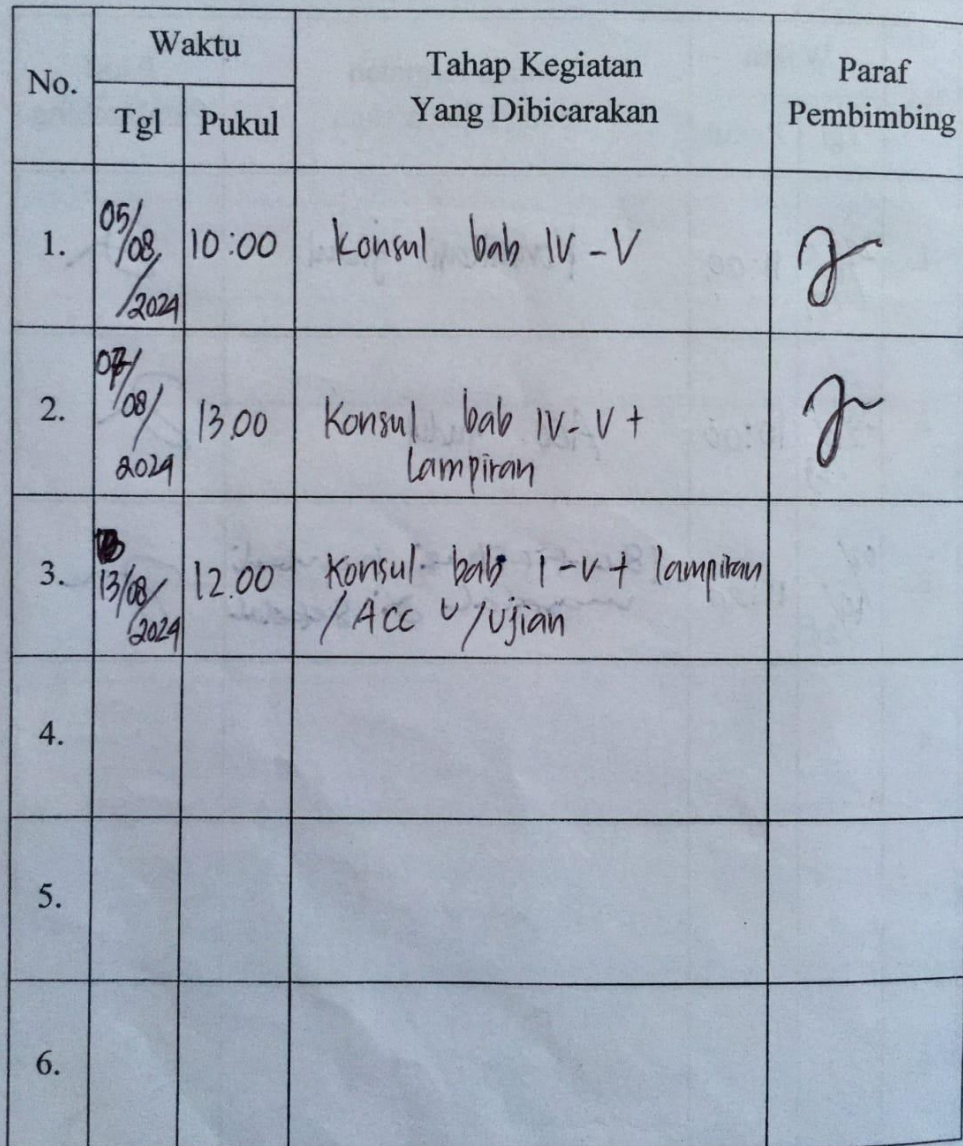 No.
Waktu
Tgl
Pukul
Tahap Kegiatan
Yang Dibicarakan
Paraf
Pembimbing
1.
05/
08/
2024
10:00
Konsul bab IV - V
2.
07/
08/
2024
13.00
Konsul bab IV - V +
Lampiran
3.
13/08/
2024
12.00
Konsul bab I - V + lampiran
/ Acc U/ujian
4.
5.
6.